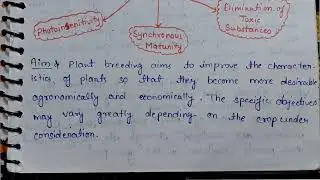 Elimination of
Toxic
Substances
Photoinsensitivity
Synchronous
Maturity
Aim :- Plant breeding aims to improve the character-
istics of plants so that they become more desirable
agronomically and economically. The specific objectives
may vary greatly depending on the crop under
consideration.